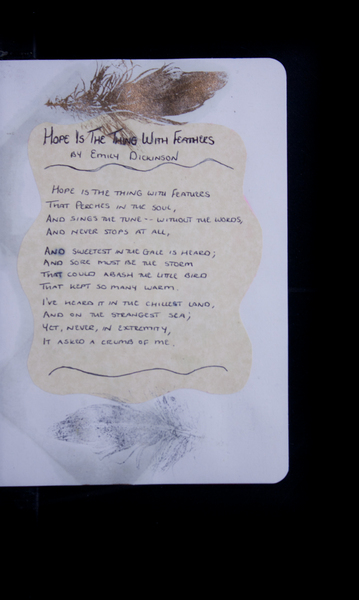 Hope Is The Thing With Feathers
by Emily Dickinson
Hope is the thing with feathers
That perches in the soul,
And sings the tune -- without the words,
And never stops at all,
And sweetest in the gale is heard;
And sore must be the storm
That could abash the little bird
That kept so many warm.
I've heard it in the chillest land,
And on the strangest sea;
Yet, never, in extremity,
It asked a crumb of me.